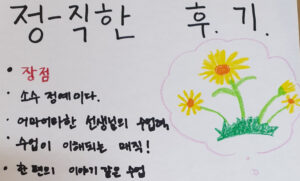 정-직한 후.기.
• 장점
• 소수 정예이다.
• 어마어마한 선생님의 수업력
• 수업이 이해되는 매직!
• 한 편의 이야기 같은 수업